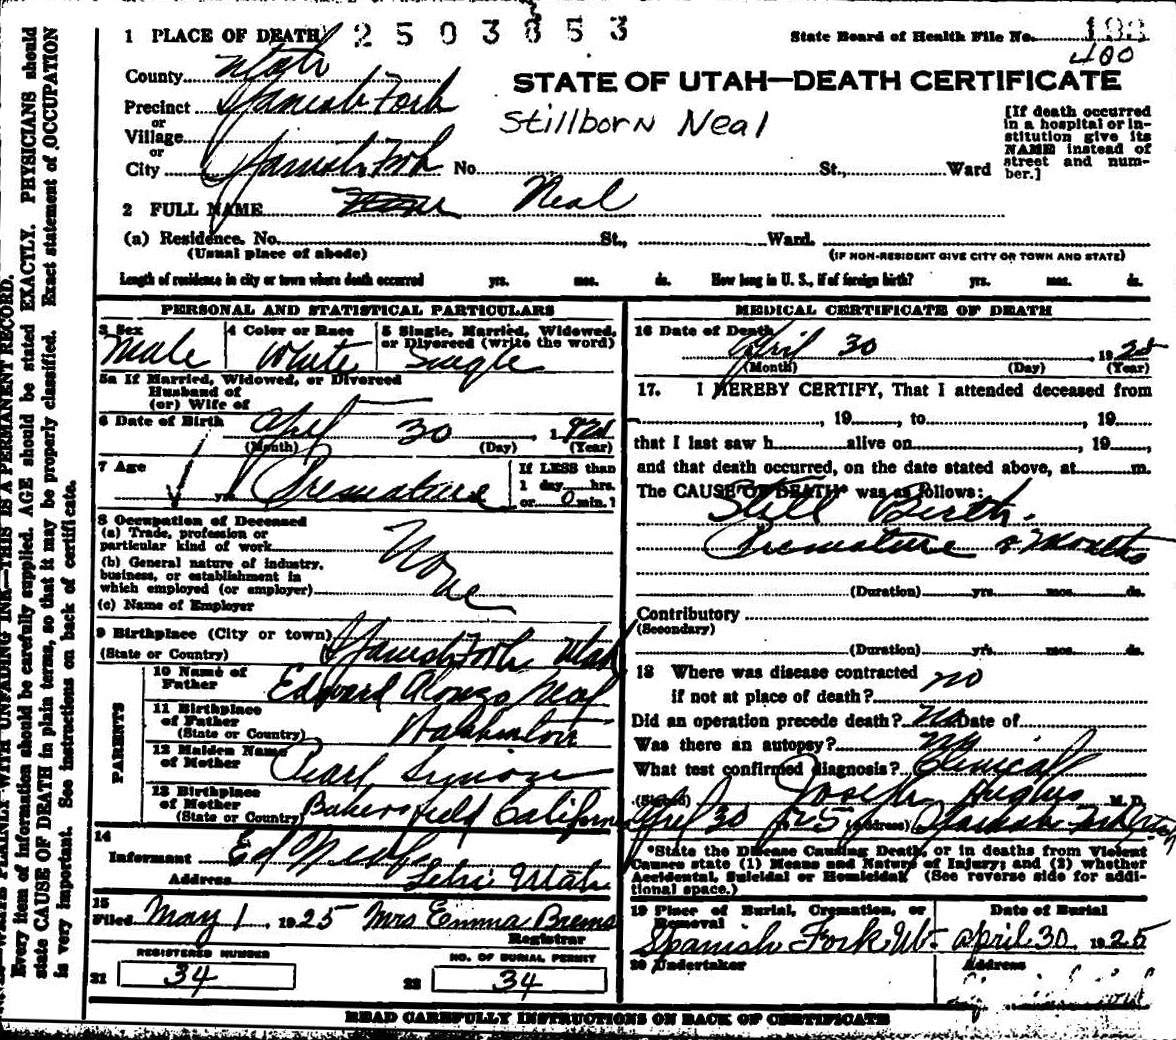 1 PLACE OF DEATH 2503653 State Board of Health File No. 188
400
County Utah
STATE OF UTAH—DEATH CERTIFICATE
Precinct Spanish Fork
or
Village
or
City Spanish Fork No. St., Ward
Stillborn Neal
[If death occurred
in a hospital or in-
stitution give its
NAME instead of
street and num-
ber.]
2 FULL NAME Neal
(a) Residence. No. St., Ward.
(Usual place of abode) (IF NON-RESIDENT GIVE CITY OR TOWN AND STATE)
Length of residence in city or town where death occurred yrs. mos. ds. How long in U. S., if of foreign birth? yrs. mos. ds.
PERSONAL AND STATISTICAL PARTICULARS
3 Sex 4 Color or Race 5 Single, Married, Widowed,
or Divorced (write the word)
Male White Single
5a If Married, Widowed, or Divorced
Husband of
(or) Wife of
6 Date of Birth April 30, 1925
(Month) (Day) (Year)
7 Age yrs. Premature
If LESS than
1 day hrs.
or 0 min.
8 Occupation of Deceased
(a) Trade, profession or
particular kind of work
None
(b) General nature of industry,
business, or establishment in
which employed (or employer)
(c) Name of Employer
9 Birthplace (City or town) Spanish Fork Utah
(State or Country)
PARENTS
10 Name of
Father Edward Alonzo Neal
11 Birthplace
of Father Washington
(State or Country)
12 Maiden Name
of Mother Pearl
13 Birthplace
of Mother Bakersfield California
(State or Country)
14
Informant Ed
Address Lehi Utah
15
Filed May 1 1925 Mrs Emma Brems
Registrar
REGISTERED NUMBER NO. OF BURIAL PERMIT
21 34 22 34
MEDICAL CERTIFICATE OF DEATH
16 Date of Death
April 30, 1925
(Month) (Day) (Year)
17. I HEREBY CERTIFY, That I attended deceased from
, 19, to, 19
that I last saw h alive on, 19
and that death occurred, on the date stated above, at m.
The CAUSE OF DEATH* was as follows:
Still Birth.
Premature Months
(Duration) yrs. mos. ds.
Contributory
(Secondary)
(Duration) yrs. mos. ds.
18 Where was disease contracted
if not at place of death? no
Did an operation precede death? No Date of
Was there an autopsy? No
What test confirmed diagnosis? Clinical
(Signed) Joseph Hughes M. D.
April 30 1925 (Address) Spanish Fork Utah
*State the Disease Causing Death, or in deaths from Violent
Causes state (1) Means and Nature of Injury; and (2) whether
Accidental, Suicidal or Homicidal. (See reverse side for addi-
tional space.)
19 Place of Burial, Cremation, or Removal Date of Burial
Spanish Fork Ut. april 30 1925
20 Undertaker Address
READ CAREFULLY INSTRUCTIONS ON BACK OF CERTIFICATE
WRITE PLAINLY WITH UNFADING INK—THIS IS A PERMANENT RECORD.
Every item of information should be carefully supplied. AGE should be stated EXACTLY. PHYSICIANS should
state CAUSE OF DEATH in plain terms, so that it may be properly classified. Exact statement of OCCUPATION
is very important. See instructions on back of certificate.